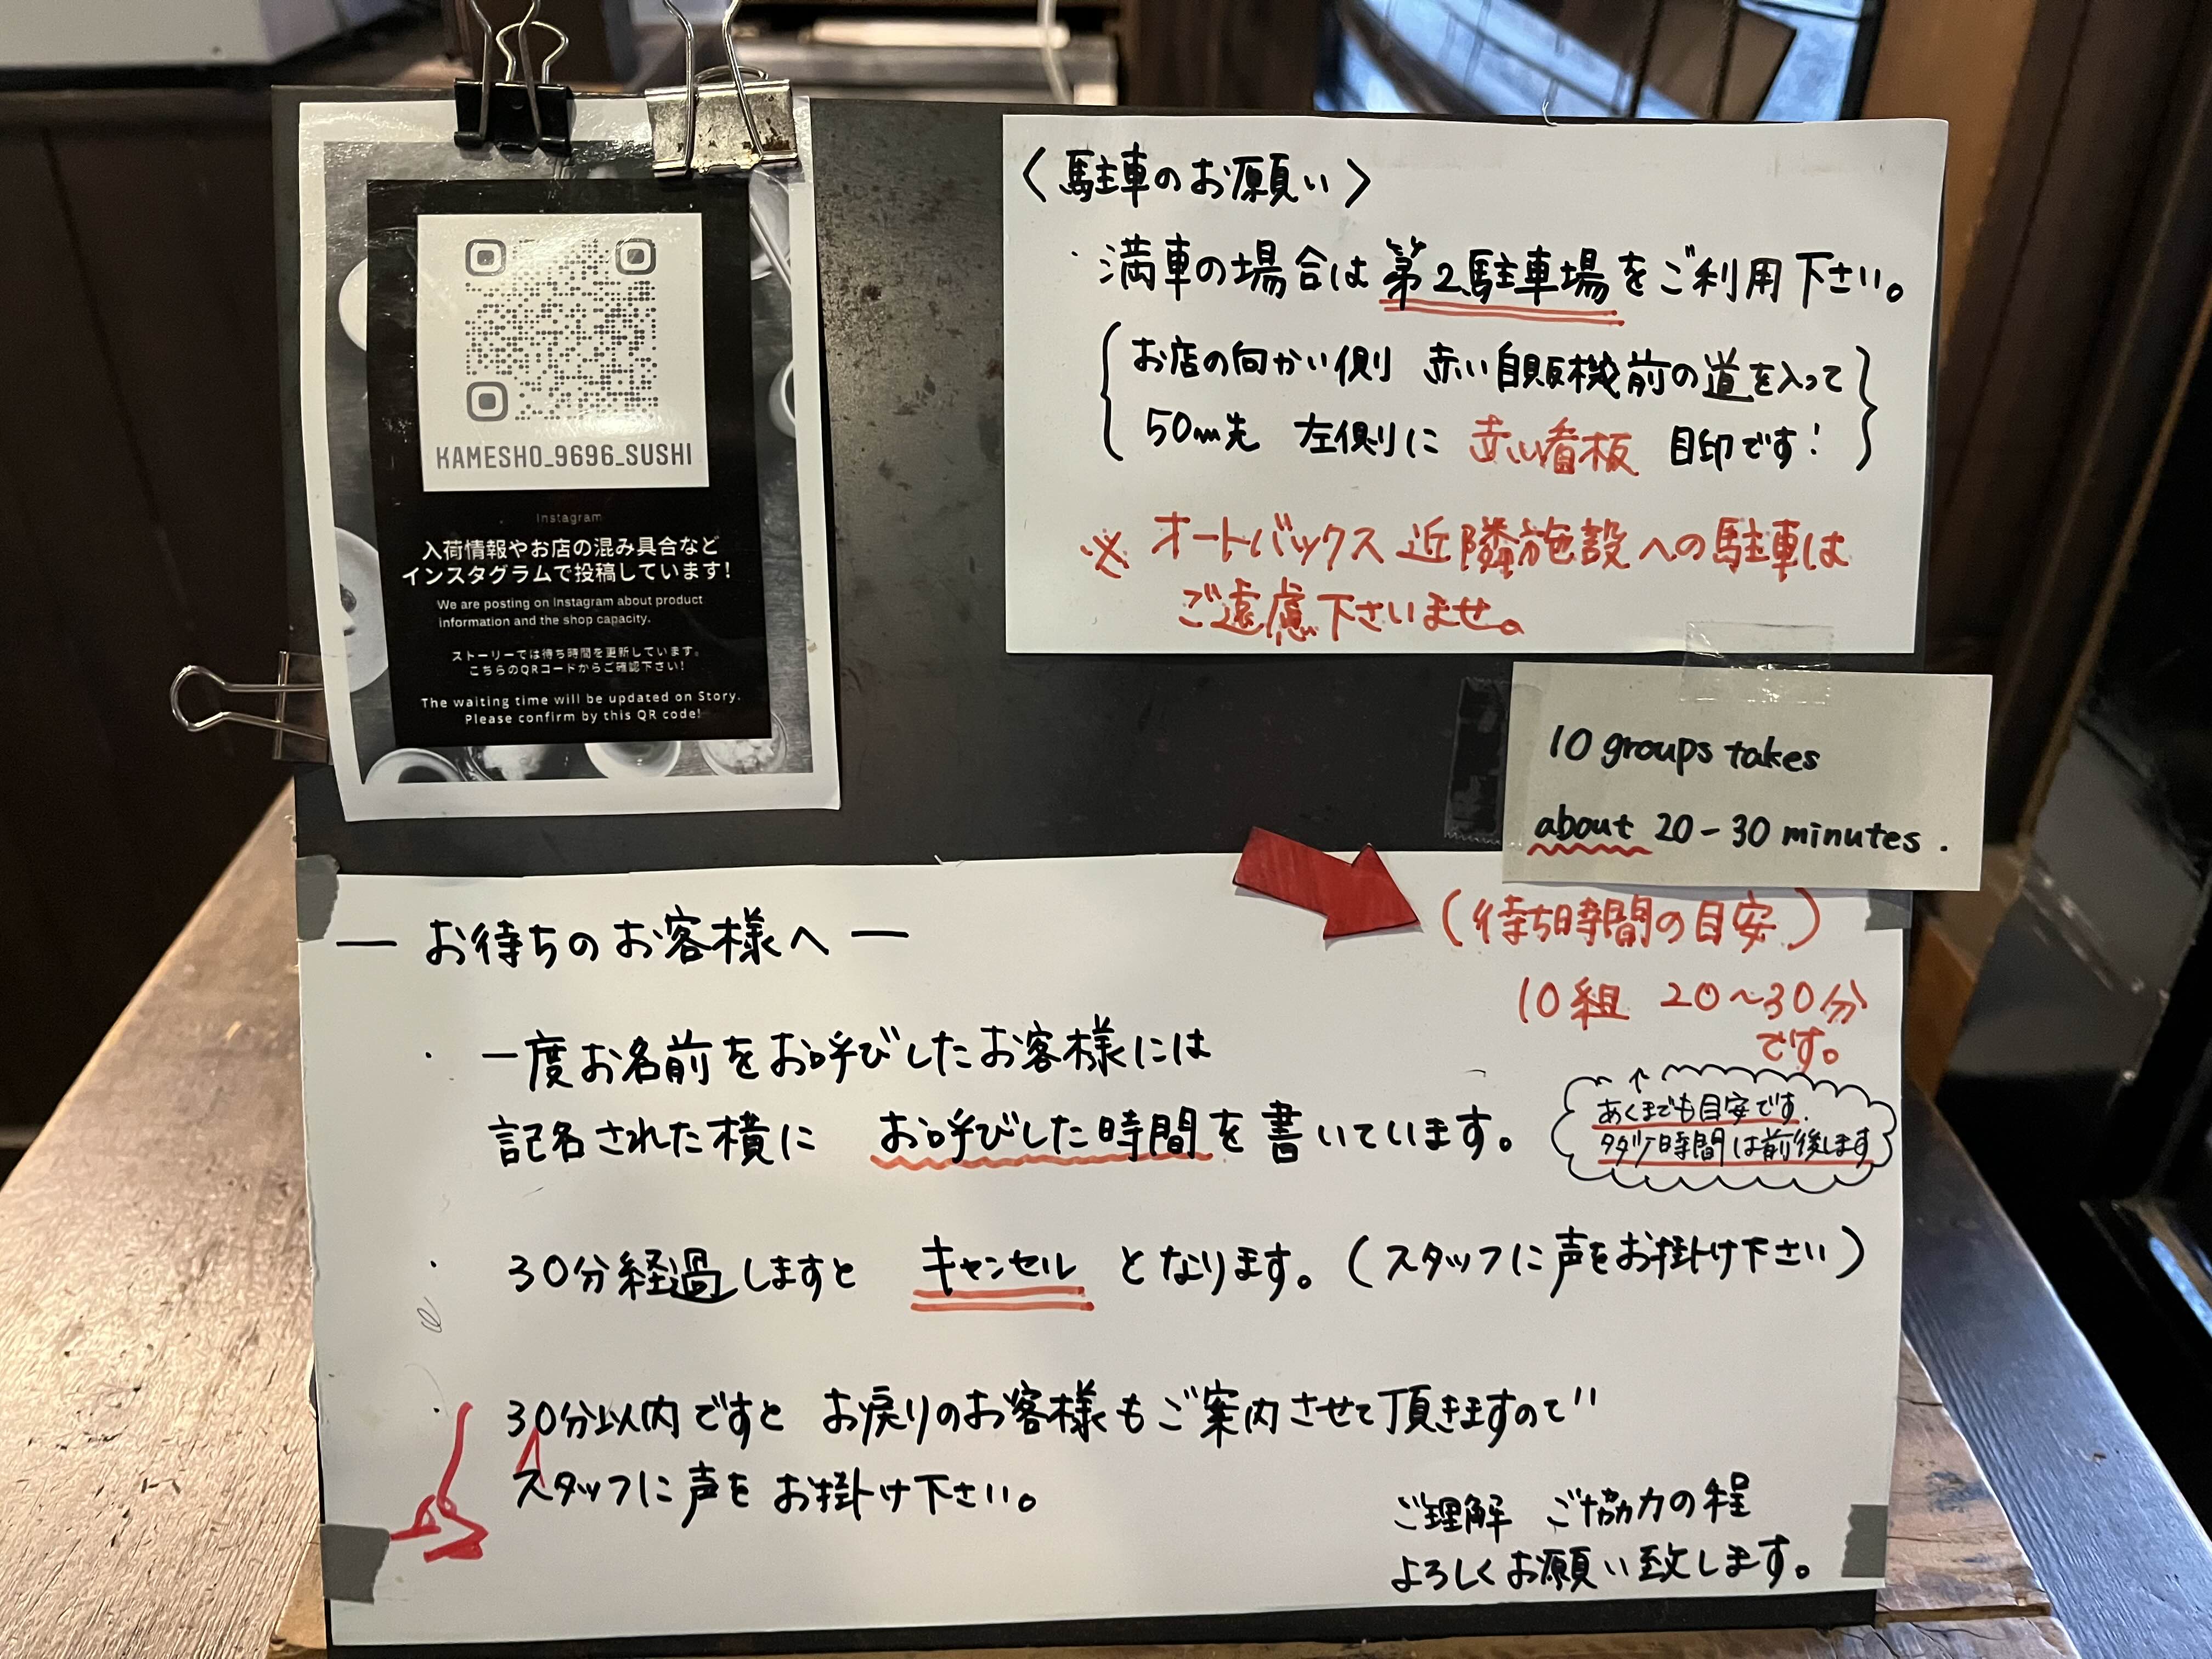 KAMESHO_9696_SUSHI
Instagram
入荷情報やお店の混み具合など
インスタグラムで投稿しています!
We are posting on Instagram about product
information and the shop capacity.
ストーリーでは待ち時間を更新しています。
こちらのQRコードからご確認下さい!
The waiting time will be updated on Story.
Please confirm by this QR code!
〈駐車のお願い〉
・満車の場合は第2駐車場をご利用下さい。
お店の向かい側 赤い自販機前の道を入って
50m先 左側に 赤い看板 目印です!
※オートバックス近隣施設への駐車は
ご遠慮下さいませ。
10 groups takes
about 20-30 minutes.
― お待ちのお客様へ ―
(待ち時間の目安)
10組 20〜30分
です。
あくまでも目安です.
タダ時間は前後します
・一度お名前をお呼びしたお客様には
記名された横に お呼びした時間を書いています。
・30分経過しますと キャンセル となります。(スタッフに声をお掛け下さい)
・30分以内ですと お戻りのお客様もご案内させて頂きますので
スタッフに声をお掛け下さい。
ご理解 ご協力の程
よろしくお願い致します。